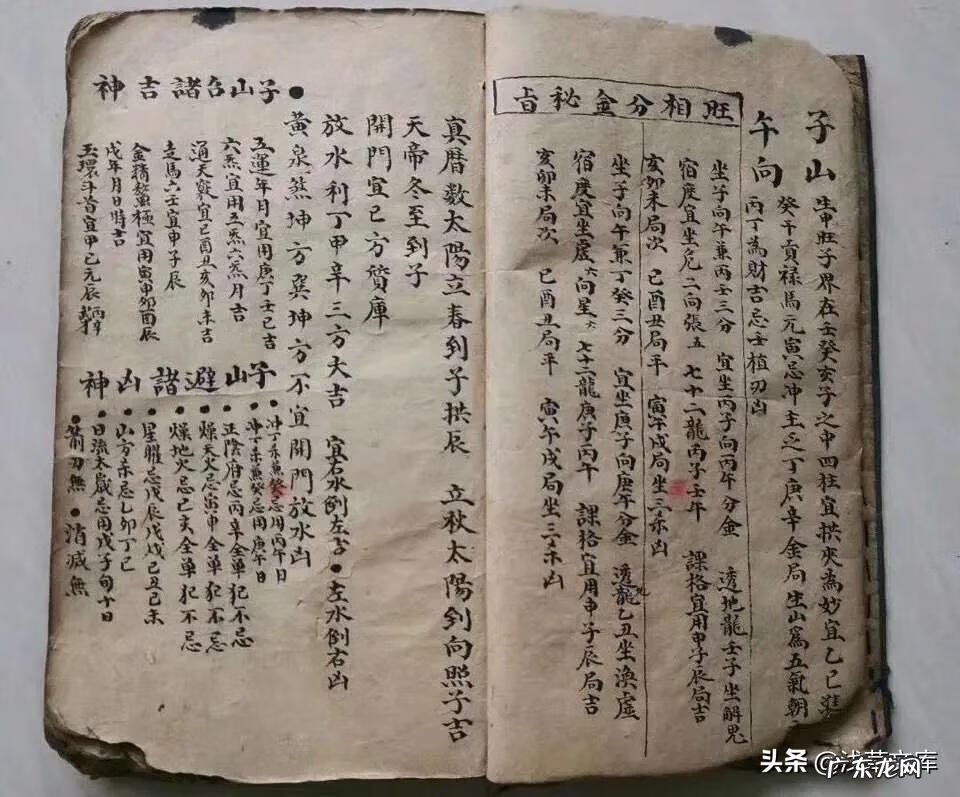 子山午向
生申旺子界在壬癸亥子之中四柱宜拱夾為妙宜乙巳
癸午貢祿馬元寅忌沖主乏丁庚辛金局生山為五氣朝
丙丁為財吉忌壬植刃凶
旺相分金秘旨
坐子向午兼丙壬三分 宜坐丙子向丙午分金 透地龍壬子坐解鬼
宿度宜坐危二向張五 七十二龍丙子壬午 課格宜用申子辰局吉
亥卯未局次 巳酉丑局平 寅午戌局坐三杀凶
坐子向午兼丁癸三分 宜坐庚子向庚午分金 透龍乙丑坐渙虛
宿度宜坐虛六向星六 七十二龍庚子丙午 課格宜用申子辰局吉
亥卯未局次 巳酉丑局平 寅午戌局坐三杀凶
真曆数太陽立春到子拱辰 立秋太陽到向照子吉
天帝冬至到子
開門宜巳方贊庫
放水利丁甲辛三方大吉 宜右水倒左吉 •左水倒右凶
黃泉煞坤方巽坤方不宜開門放水凶
•子山台諸吉神
五運年月宜用庚丁壬己吉
六炁宜用五炁六炁月吉
通天竅宜巳酉丑亥卯未吉
走馬六壬宜申子辰
金精鰲極宜用寅申卯酉辰
戊年月日時吉
玉環斗首宜甲己元辰
子山避諸凶神
•沖丁杀兼癸忌用丙午日
•沖丁杀兼癸忌用庚午日
•正陰府忌丙辛全單犯不忌
•燥天火忌寅申全單犯不忌
•燥地火忌巳亥全單犯不忌
•星曜忌戊辰戊戌己丑己未
•山方杀忌乙卯丁巳
•日流太歲忌用戊子旬十日
•箭刃無 •消減無
头条 @浅草文库
广东龙网